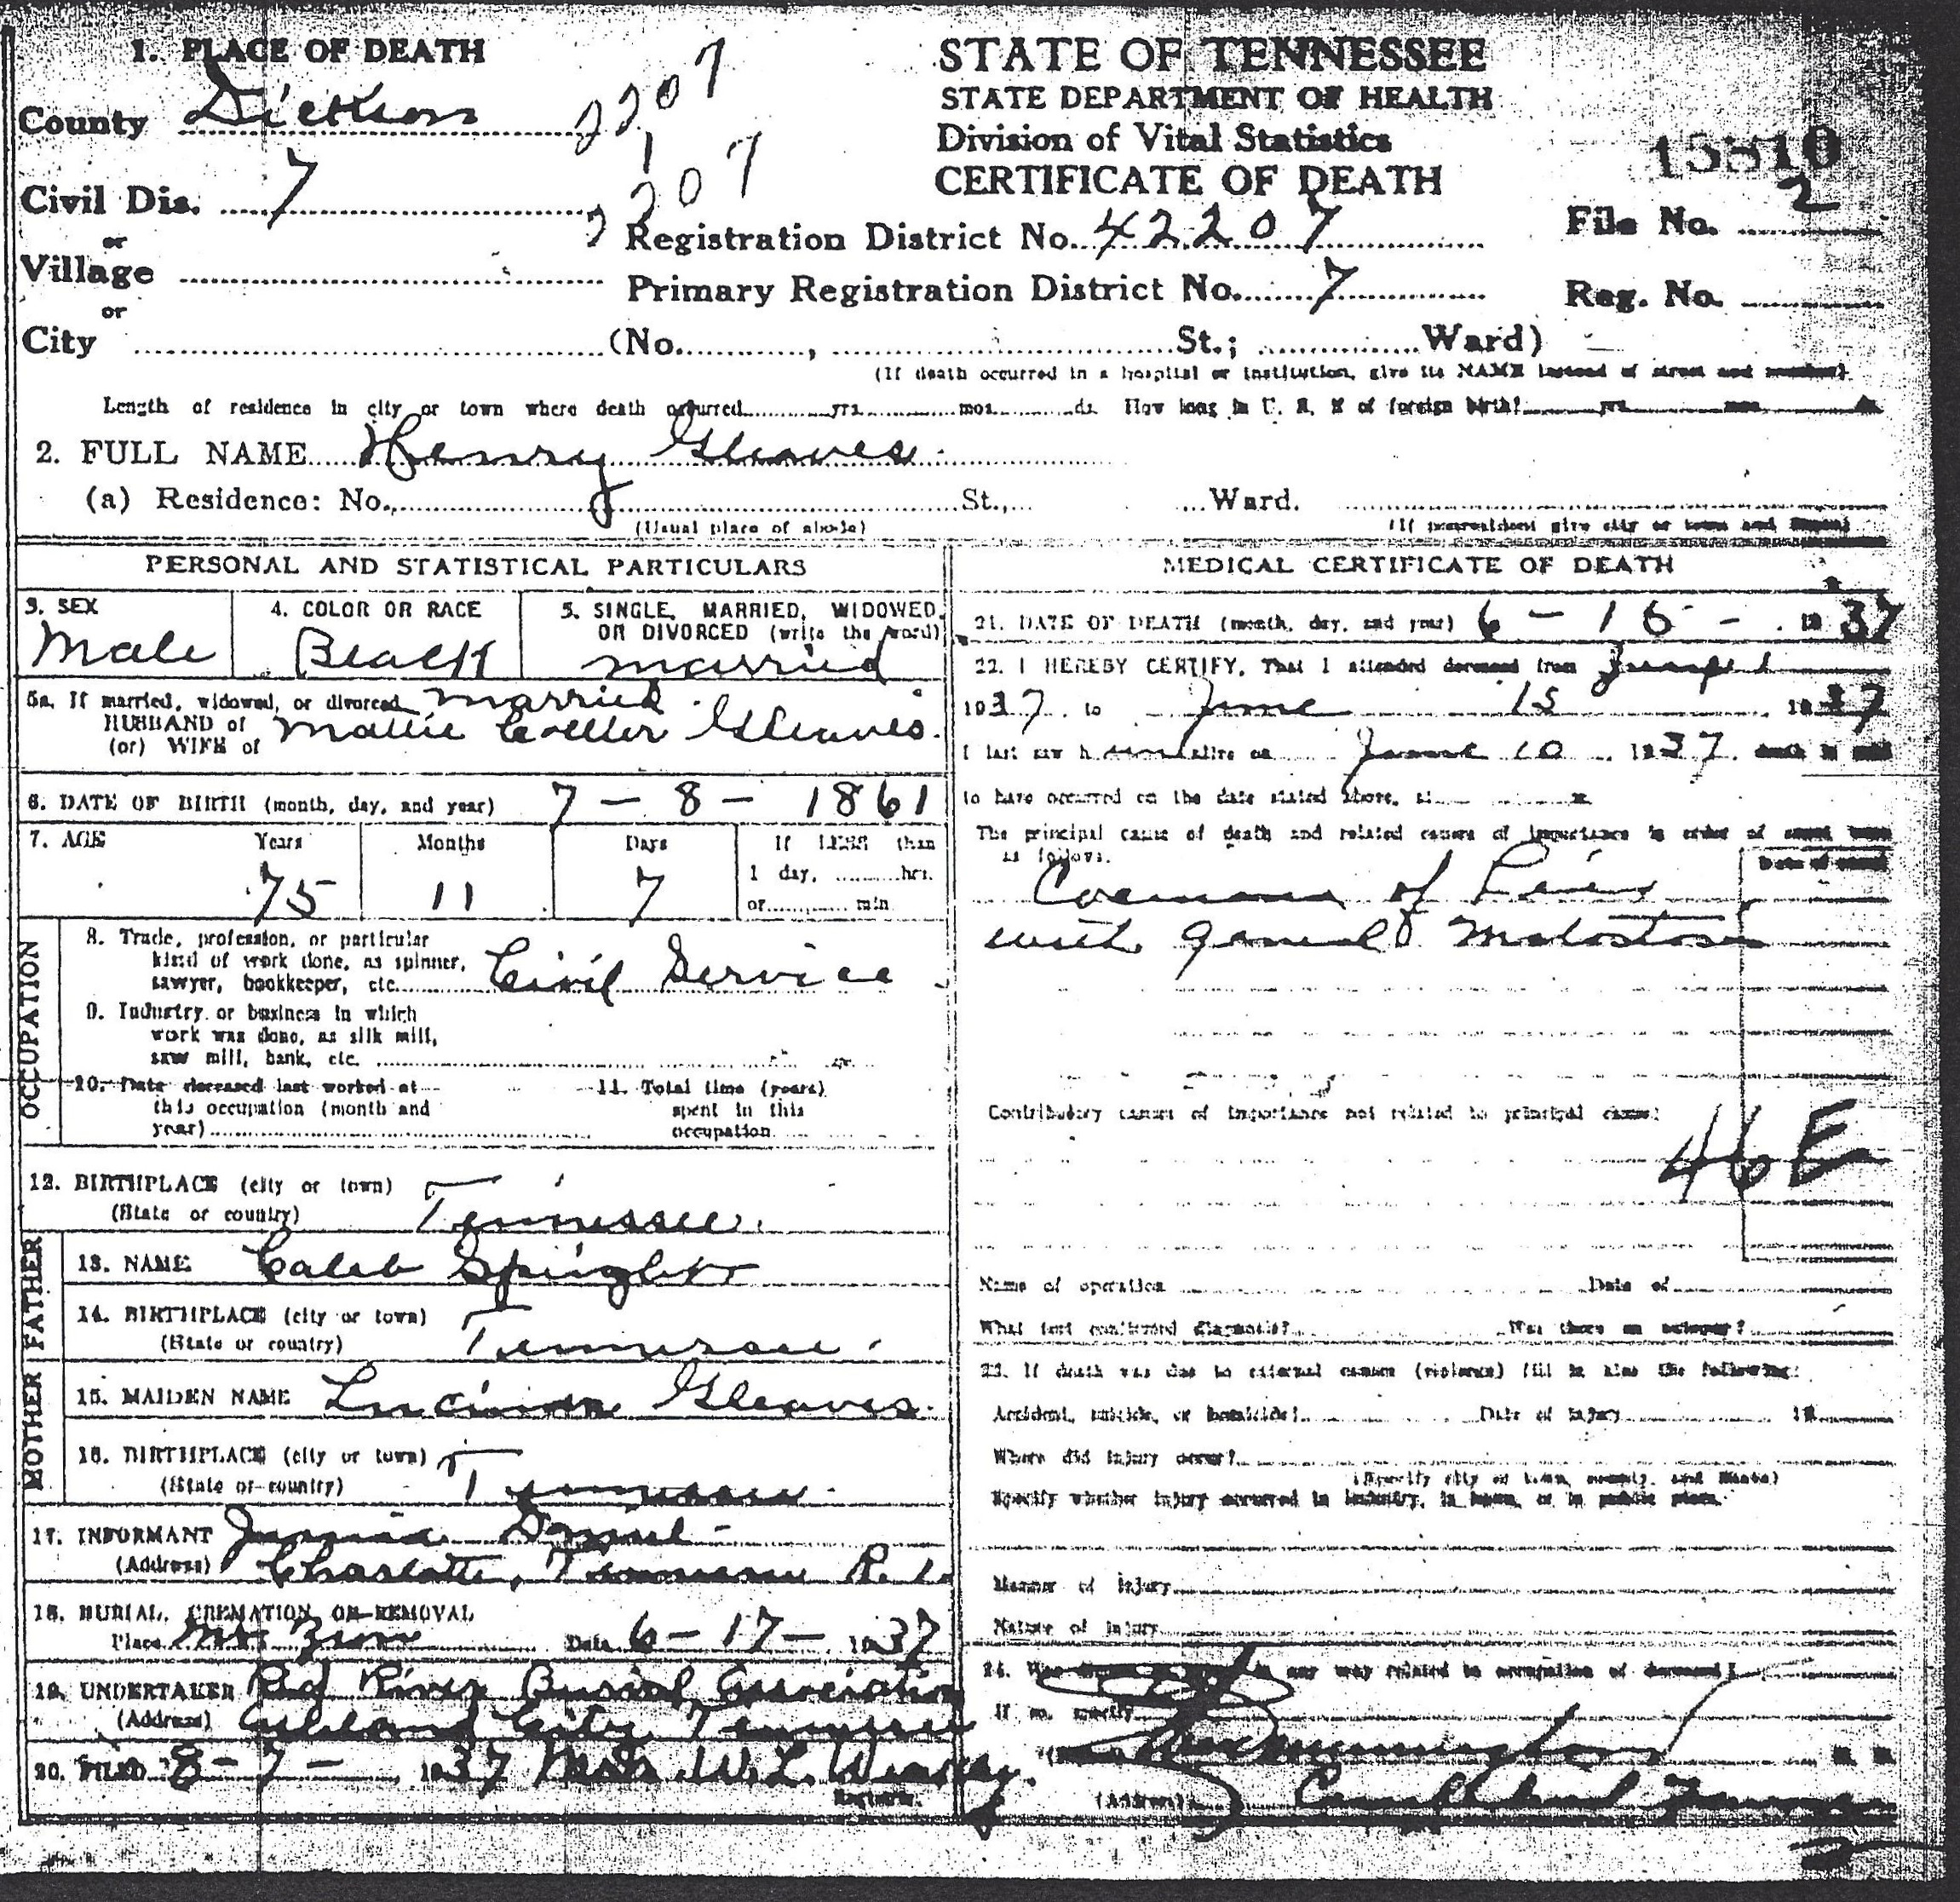 1. PLACE OF DEATH
County Dickson 2207
1
Civil Dis. 7 2207
or
Village
or
City (No. , St.; Ward)
STATE OF TENNESSEE
STATE DEPARTMENT OF HEALTH
Division of Vital Statistics
CERTIFICATE OF DEATH
Registration District No. 42207
Primary Registration District No. 7
15810
2
File No.
Reg. No.
(If death occurred in a hospital or institution, give its NAME instead of street and number).
Length of residence in city or town where death occurred yrs. mos. ds. How long in U. S. if of foreign birth? yrs. mos. ds.
2. FULL NAME Henry Gleaves
(a) Residence: No. St., Ward.
(Usual place of abode) (If nonresident give city or town and State)
PERSONAL AND STATISTICAL PARTICULARS
3. SEX
Male
4. COLOR OR RACE
Black
5. SINGLE, MARRIED, WIDOWED, OR DIVORCED (write the word)
married
5a. If married, widowed, or divorced married
HUSBAND of
(or) WIFE of Mattie Gleaves.
6. DATE OF BIRTH (month, day, and year) 7 - 8 - 1861
7. AGE Years Months Days If LESS than
1 day, hrs.
75 11 7 or min
OCCUPATION
8. Trade, profession, or particular
kind of work done, as spinner,
sawyer, bookkeeper, etc. Civil Service
9. Industry or business in which
work was done, as silk mill,
saw mill, bank, etc.
10. Date deceased last worked at
this occupation (month and
year)
11. Total time (years)
spent in this
occupation
12. BIRTHPLACE (city or town)
(State or country) Tennessee.
FATHER
13. NAME Caleb Speight
14. BIRTHPLACE (city or town)
(State or country) Tennessee.
MOTHER
15. MAIDEN NAME Gleaves.
16. BIRTHPLACE (city or town)
(State or country) Tennessee.
17. INFORMANT
(Address) Charlotte, Tennessee R. 1.
18. BURIAL, CREMATION OR REMOVAL
Place Mt. Zion Date 6-17- 1937
19. UNDERTAKER Red River Burial Association
(Address) Ashland City Tennessee
20. FILED 8-7- 1937 Mrs. W. L.
Registrar.
MEDICAL CERTIFICATE OF DEATH
21. DATE OF DEATH (month, day, and year) 6 - 15 - 1937
22. I HEREBY CERTIFY, That I attended deceased from June 1
1937, to June 15, 1937
I last saw him alive on June 10, 1937, death is said
to have occurred on the date stated above, at m.
The principal cause of death and related causes of importance in order of onset were
as follows:
Date of onset
of Liver
with general
Contributory causes of importance not related to principal cause:
46E
Name of operation Date of
What test confirmed diagnosis? Was there an autopsy?
23. If death was due to external causes (violence) fill in also the following:
Accident, suicide, or homicide? Date of injury 19
Where did injury occur?
(Specify city or town, county, and State)
Specify whether injury occurred in industry, in home, or in public place.
Manner of injury
Nature of injury
24. Was in any way related to occupation of deceased?
If so, specify
(Address)